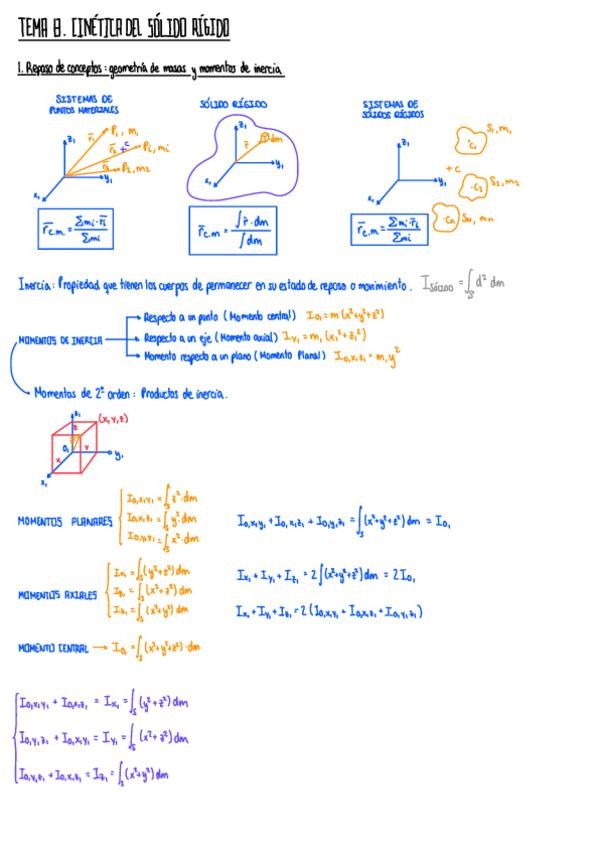 TEMA 8. CINÉTICA DEL SÓLIDO RÍGIDO
1. Repaso de conceptos: geometría de masas y momentos de inercia
SISTEMAS DE PUNTOS MATERIALES
z₁ P₁, m₁
r̄₁ r̄₂ c Pi, mi
P₂, m₂
x₁ y₁
r̄c.m = Σmi·r̄i / Σmi
SÓLIDO RÍGIDO
z₁ dm
r̄
x₁ y₁
r̄c.m = ∫r̄·dm / ∫dm
SISTEMAS DE SÓLIDOS RÍGIDOS
z₁ S₁, m₁
·c₁
+c
x₁ y₁
·c₂ S₂, m₂
·cn Sn, mn
r̄c.m = Σmi·r̄i / Σmi
Inercia: Propiedad que tienen los cuerpos de permanecer en su estado de reposo o movimiento. I SÓLIDO = ∫s d² dm
MOMENTOS DE INERCIA
Respecto a un punto (Momento central) Io₁ = m (x²+y²+z²)
Respecto a un eje (Momento axial) Iy₁ = m₁ (x₁²+z₁²)
Momento respecto a un plano (Momento Planal) Io₁x₁z₁ = m₁y²
Momentos de 2º orden: Productos de inercia.
z₁ (x, y, z)
z
O₁ y₁
x y
x₁
MOMENTOS PLANARES
Io₁x₁y₁ = ∫s z²·dm
Io₁x₁z₁ = ∫s y²·dm
Io₁y₁z₁ = ∫s x²·dm
Io₁x₁y₁ + Io₁x₁z₁ + Io₁y₁z₁ = ∫s (x²+y²+z²) dm = Io₁
MOMENTOS AXIALES
Ix₁ = ∫s (y²+z²) dm
= ∫s (x²+z²) dm
Iz₁ = ∫s (x²+y²) dm
Ix₁ + Iy₁ + Iz₁ = 2∫(x²+y²+z²) dm = 2Io₁
Ix₁ + Iy₁ + Iz₁ = 2(Io₁x₁y₁ + Io₁x₁z₁ + Io₁y₁z₁)
MOMENTO CENTRAL → Io₁ = ∫s (x²+y²+z²)·dm
Io₁x₁y₁ + Io₁x₁z₁ = Ix₁ = ∫s (y²+z²) dm
Io₁y₁z₁ + Io₁x₁y₁ = Iy₁ = ∫s (x²+z²) dm
Io₁y₁z₁ + Io₁x₁z₁ = Iz₁ = ∫s (x²+y²) dm